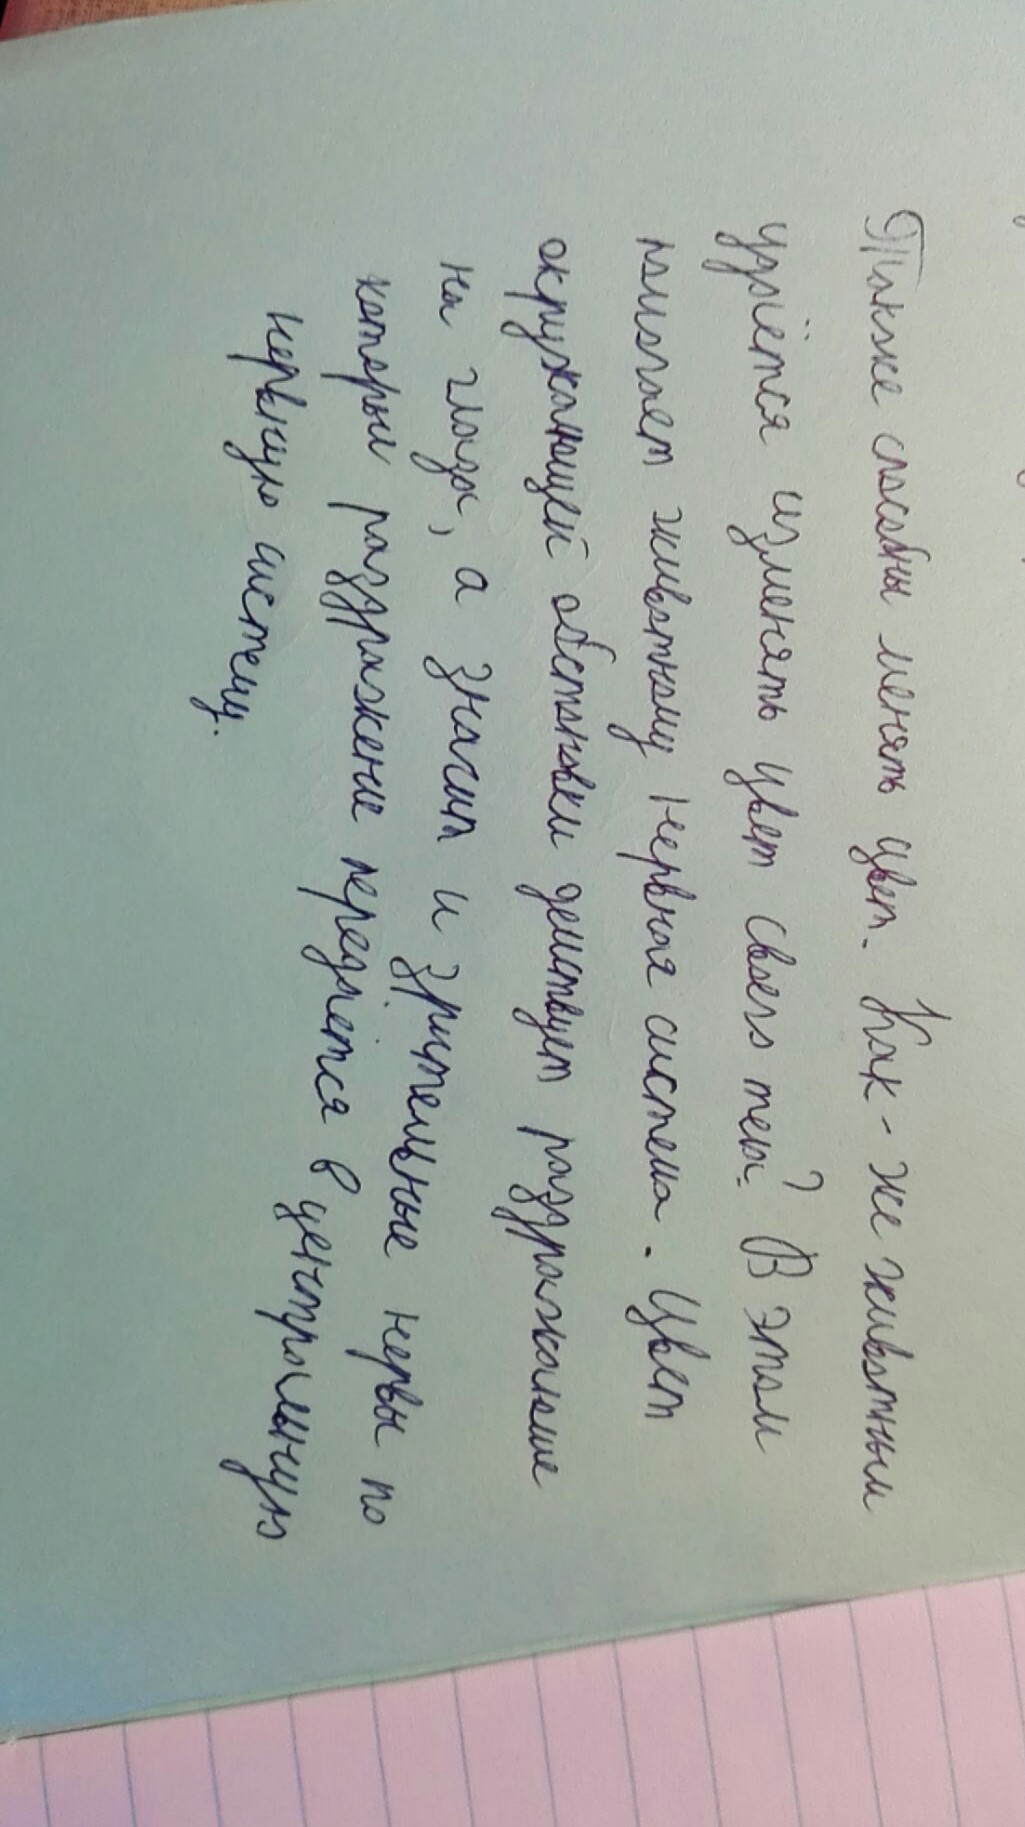 Также способны менять цвет. Как - же животным
удаётся изменять цвет своего тела? В этом
помогает животному нервная система. Цвет
окружающей обстановки действует раздражающие
на глаза, а значит и зрительные нервы по
которым раздражение передаётся в центральную
нервную систему.